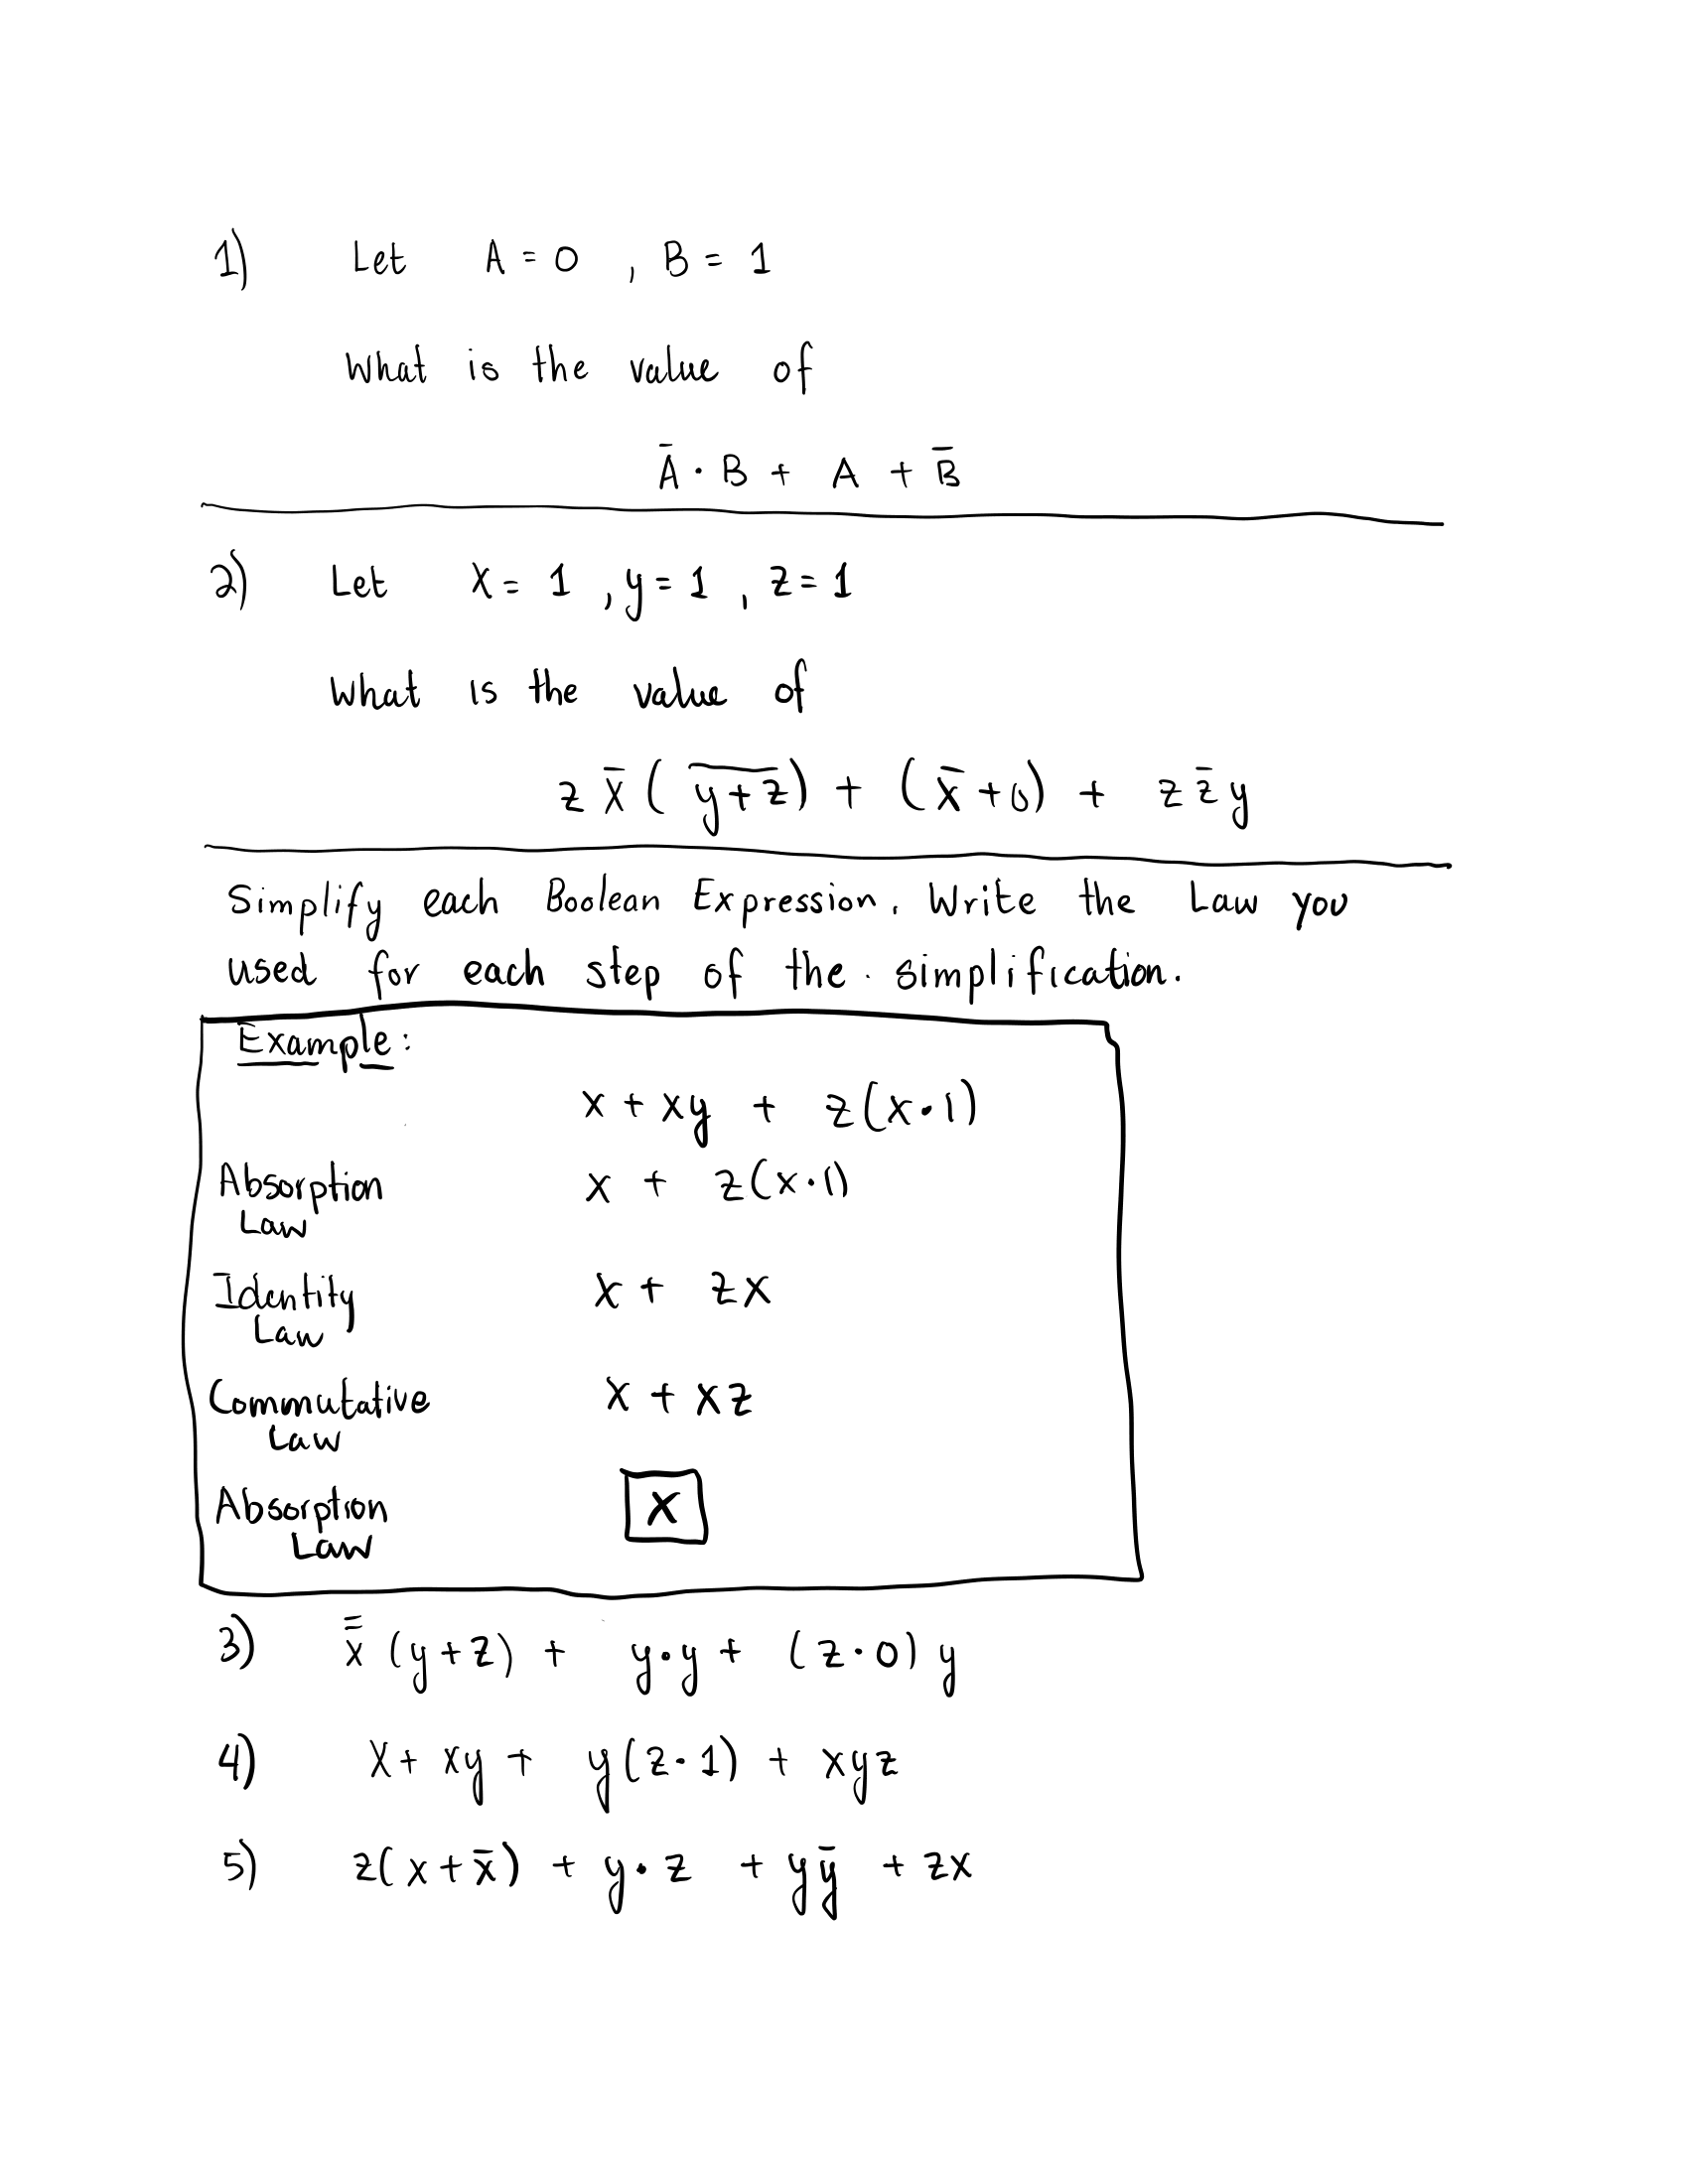 1) Let A = 0 , B = 1
What is the value of
Ā · B + A + B̄
2) Let X = 1 , y = 1 , z = 1
What is the value of
z x̄ ( y̅+̅z̅ ) + ( x̄ + 0 ) + z z̄ y
Simplify each Boolean Expression. Write the Law you
used for each step of the simplification.
Example:
x + xy + z(x·1)
Absorption Law x + z(x·1)
Identity Law x + zx
Commutative Law x + xz
Absorption Law x
3) x̿ (y+z) + y·y + (z·0) y
4) X + xy + y(z·1) + xyz
5) z(x + x̄) + y·z + yȳ + zx